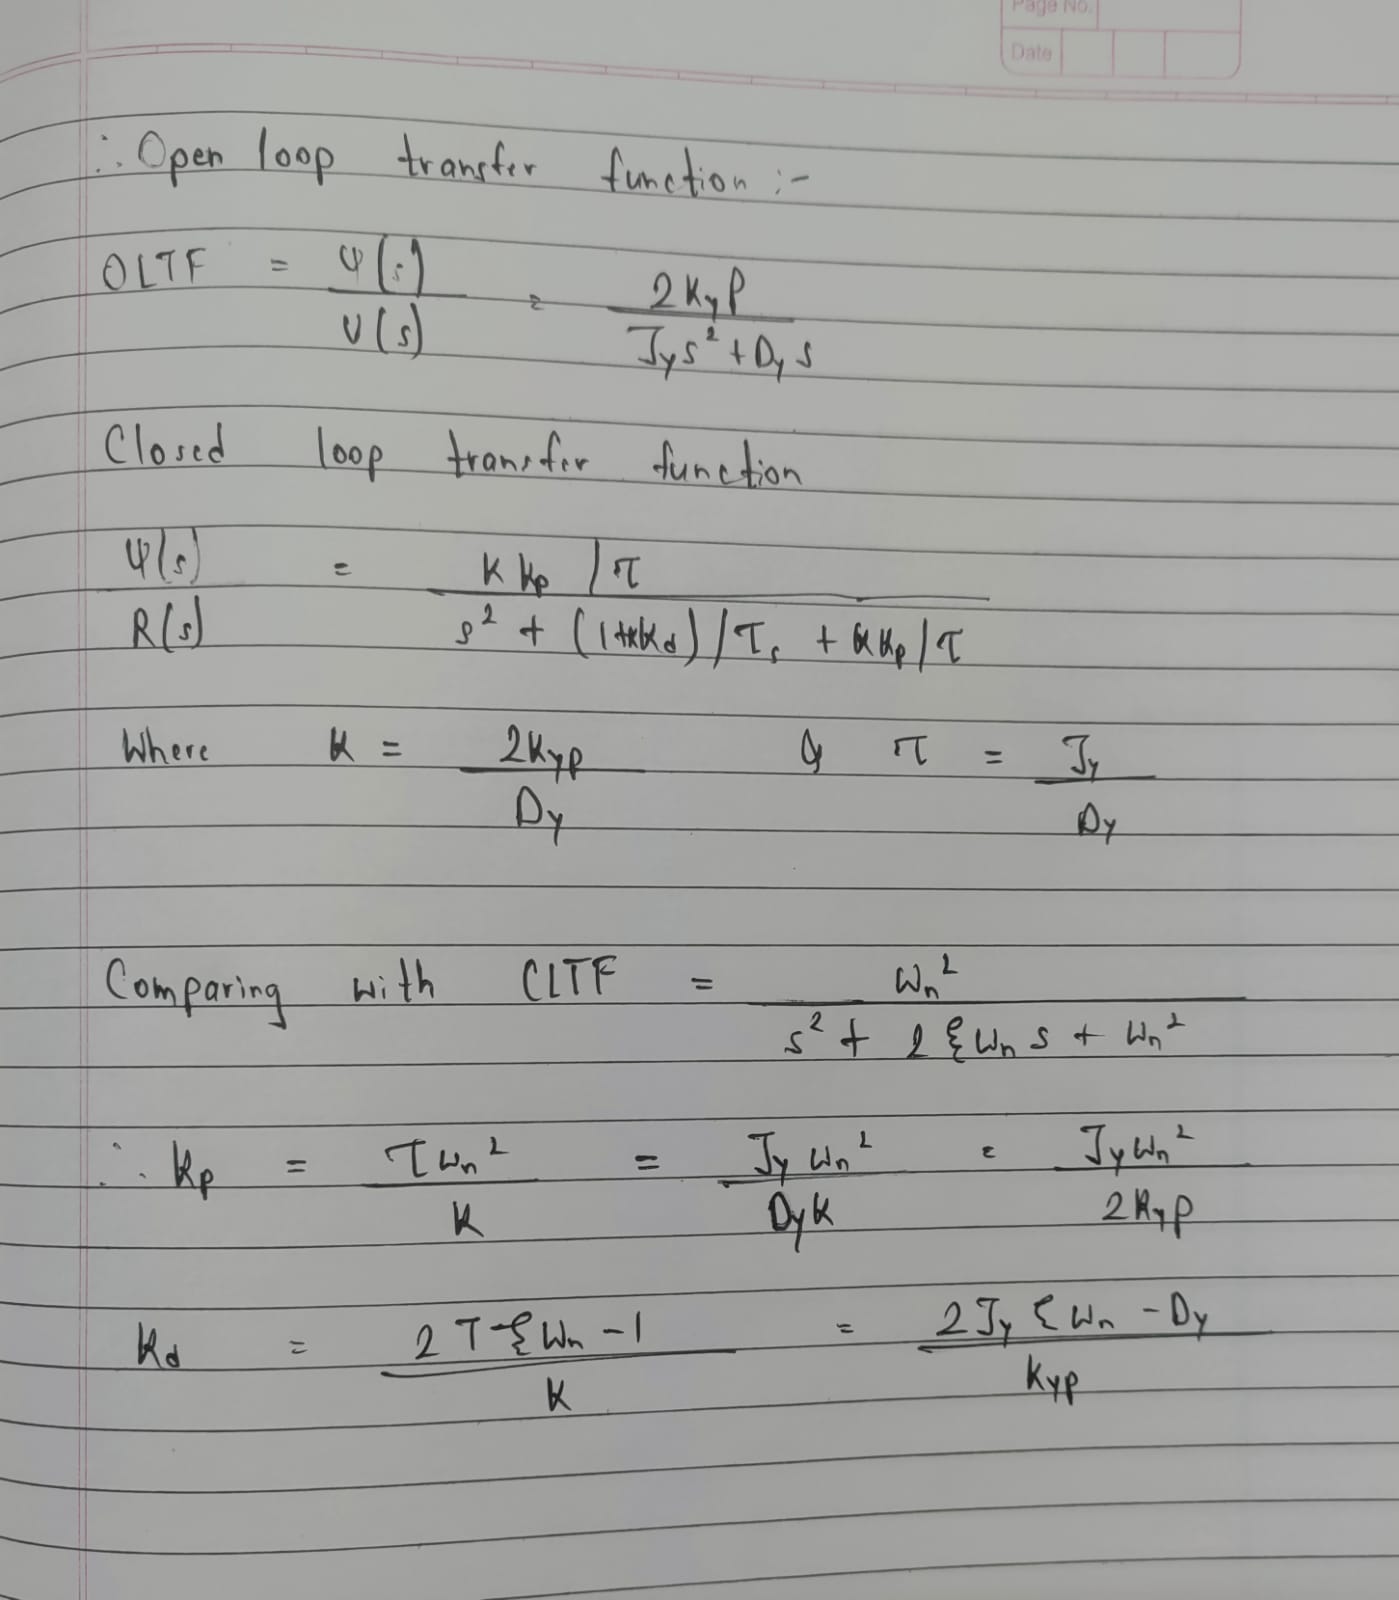 Page No.
Date
∴ Open loop transfer function :-
OLTF = Ψ(s)/V(s) = 2KyP/(Jys² + Dys)
Closed loop transfer function
Ψ(s)/R(s) = (K kp /τ)/(s² + (1+KKd)/τs + KKp/τ)
Where K = 2Kyp/Dy & τ = Jy/Dy
Comparing with CLTF = ωn²/(s² + 2ξωn s + ωn²)
∴ Kp = τωn²/K = Jyωn²/DyK = Jyωn²/2Kyp
Kd = (2τξωn - 1)/K = (2Jyξωn - Dy)/Kyp